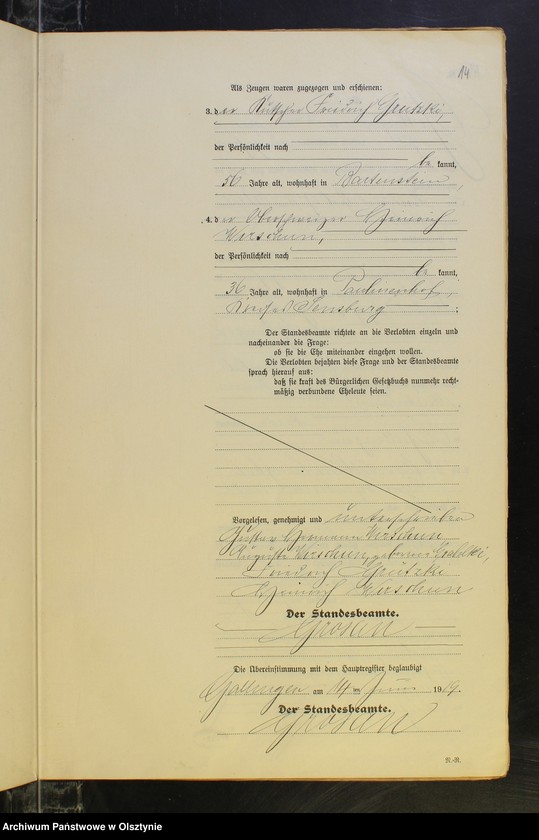 14
Als Zeugen waren zugezogen und erschienen:
3. der Kutscher Friedrich Grützki,
der Persönlichkeit nach
be kannt,
56 Jahre alt, wohnhaft in Bartenstein,
4. der Oberschweizer Heinrich
Kirschun,
der Persönlichkeit nach
be kannt,
36 Jahre alt, wohnhaft in Paulinenhof,
Kreises Sensburg ;
Der Standesbeamte richtete an die Verlobten einzeln und
nacheinander die Frage:
ob sie die Ehe miteinander eingehen wollen.
Die Verlobten bejahten diese Frage und der Standesbeamte
sprach hierauf aus:
daß sie kraft des Bürgerlichen Gesetzbuchs nunmehr recht-
mäßig verbundene Eheleute seien.
Vorgelesen, genehmigt und unterschrieben
Gustav Hermann Kirschun
Auguste Kirschun, geborene
Friedrich Grützki
Heinrich Kirschun
Der Standesbeamte.
Grosen
Die Übereinstimmung mit dem Hauptregister beglaubigt
Gallingen am 14 ten Juni 1919.
Der Standesbeamte.
Grosen
R.-R.
Archiwum Państwowe w Olsztynie